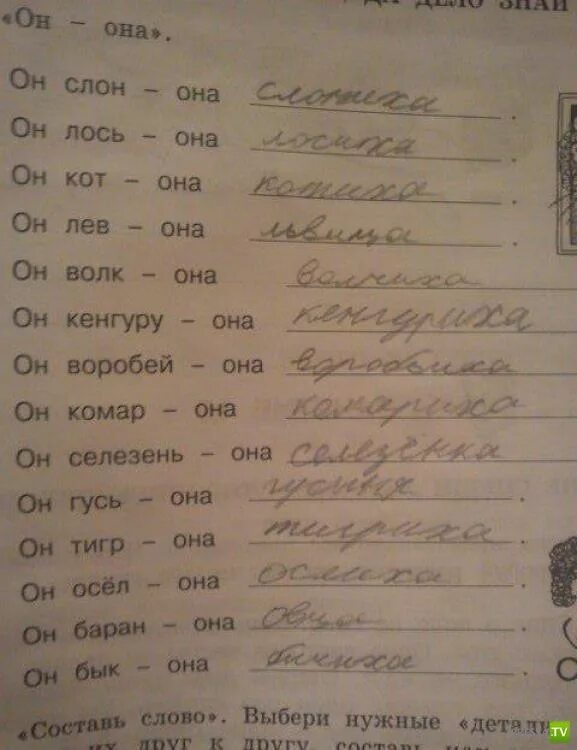 ДА ДЕЛО ЗНАЙ
«Он – она».
Он слон – она слониха.
Он лось – она лосиха.
Он кот – она котиха.
Он лев – она львица.
Он волк – она волчиха
Он кенгуру – она кенгуриха
Он воробей – она воробьиха
Он комар – она комариха
Он селезень – она селезёнка
Он гусь – она гусыня.
Он тигр – она тигриха.
Он осёл – она ослиха.
Он баран – она овца.
Он бык – она бычиха.
«Составь слово». Выбери нужные «детали
их друг к другу, составь
.TV